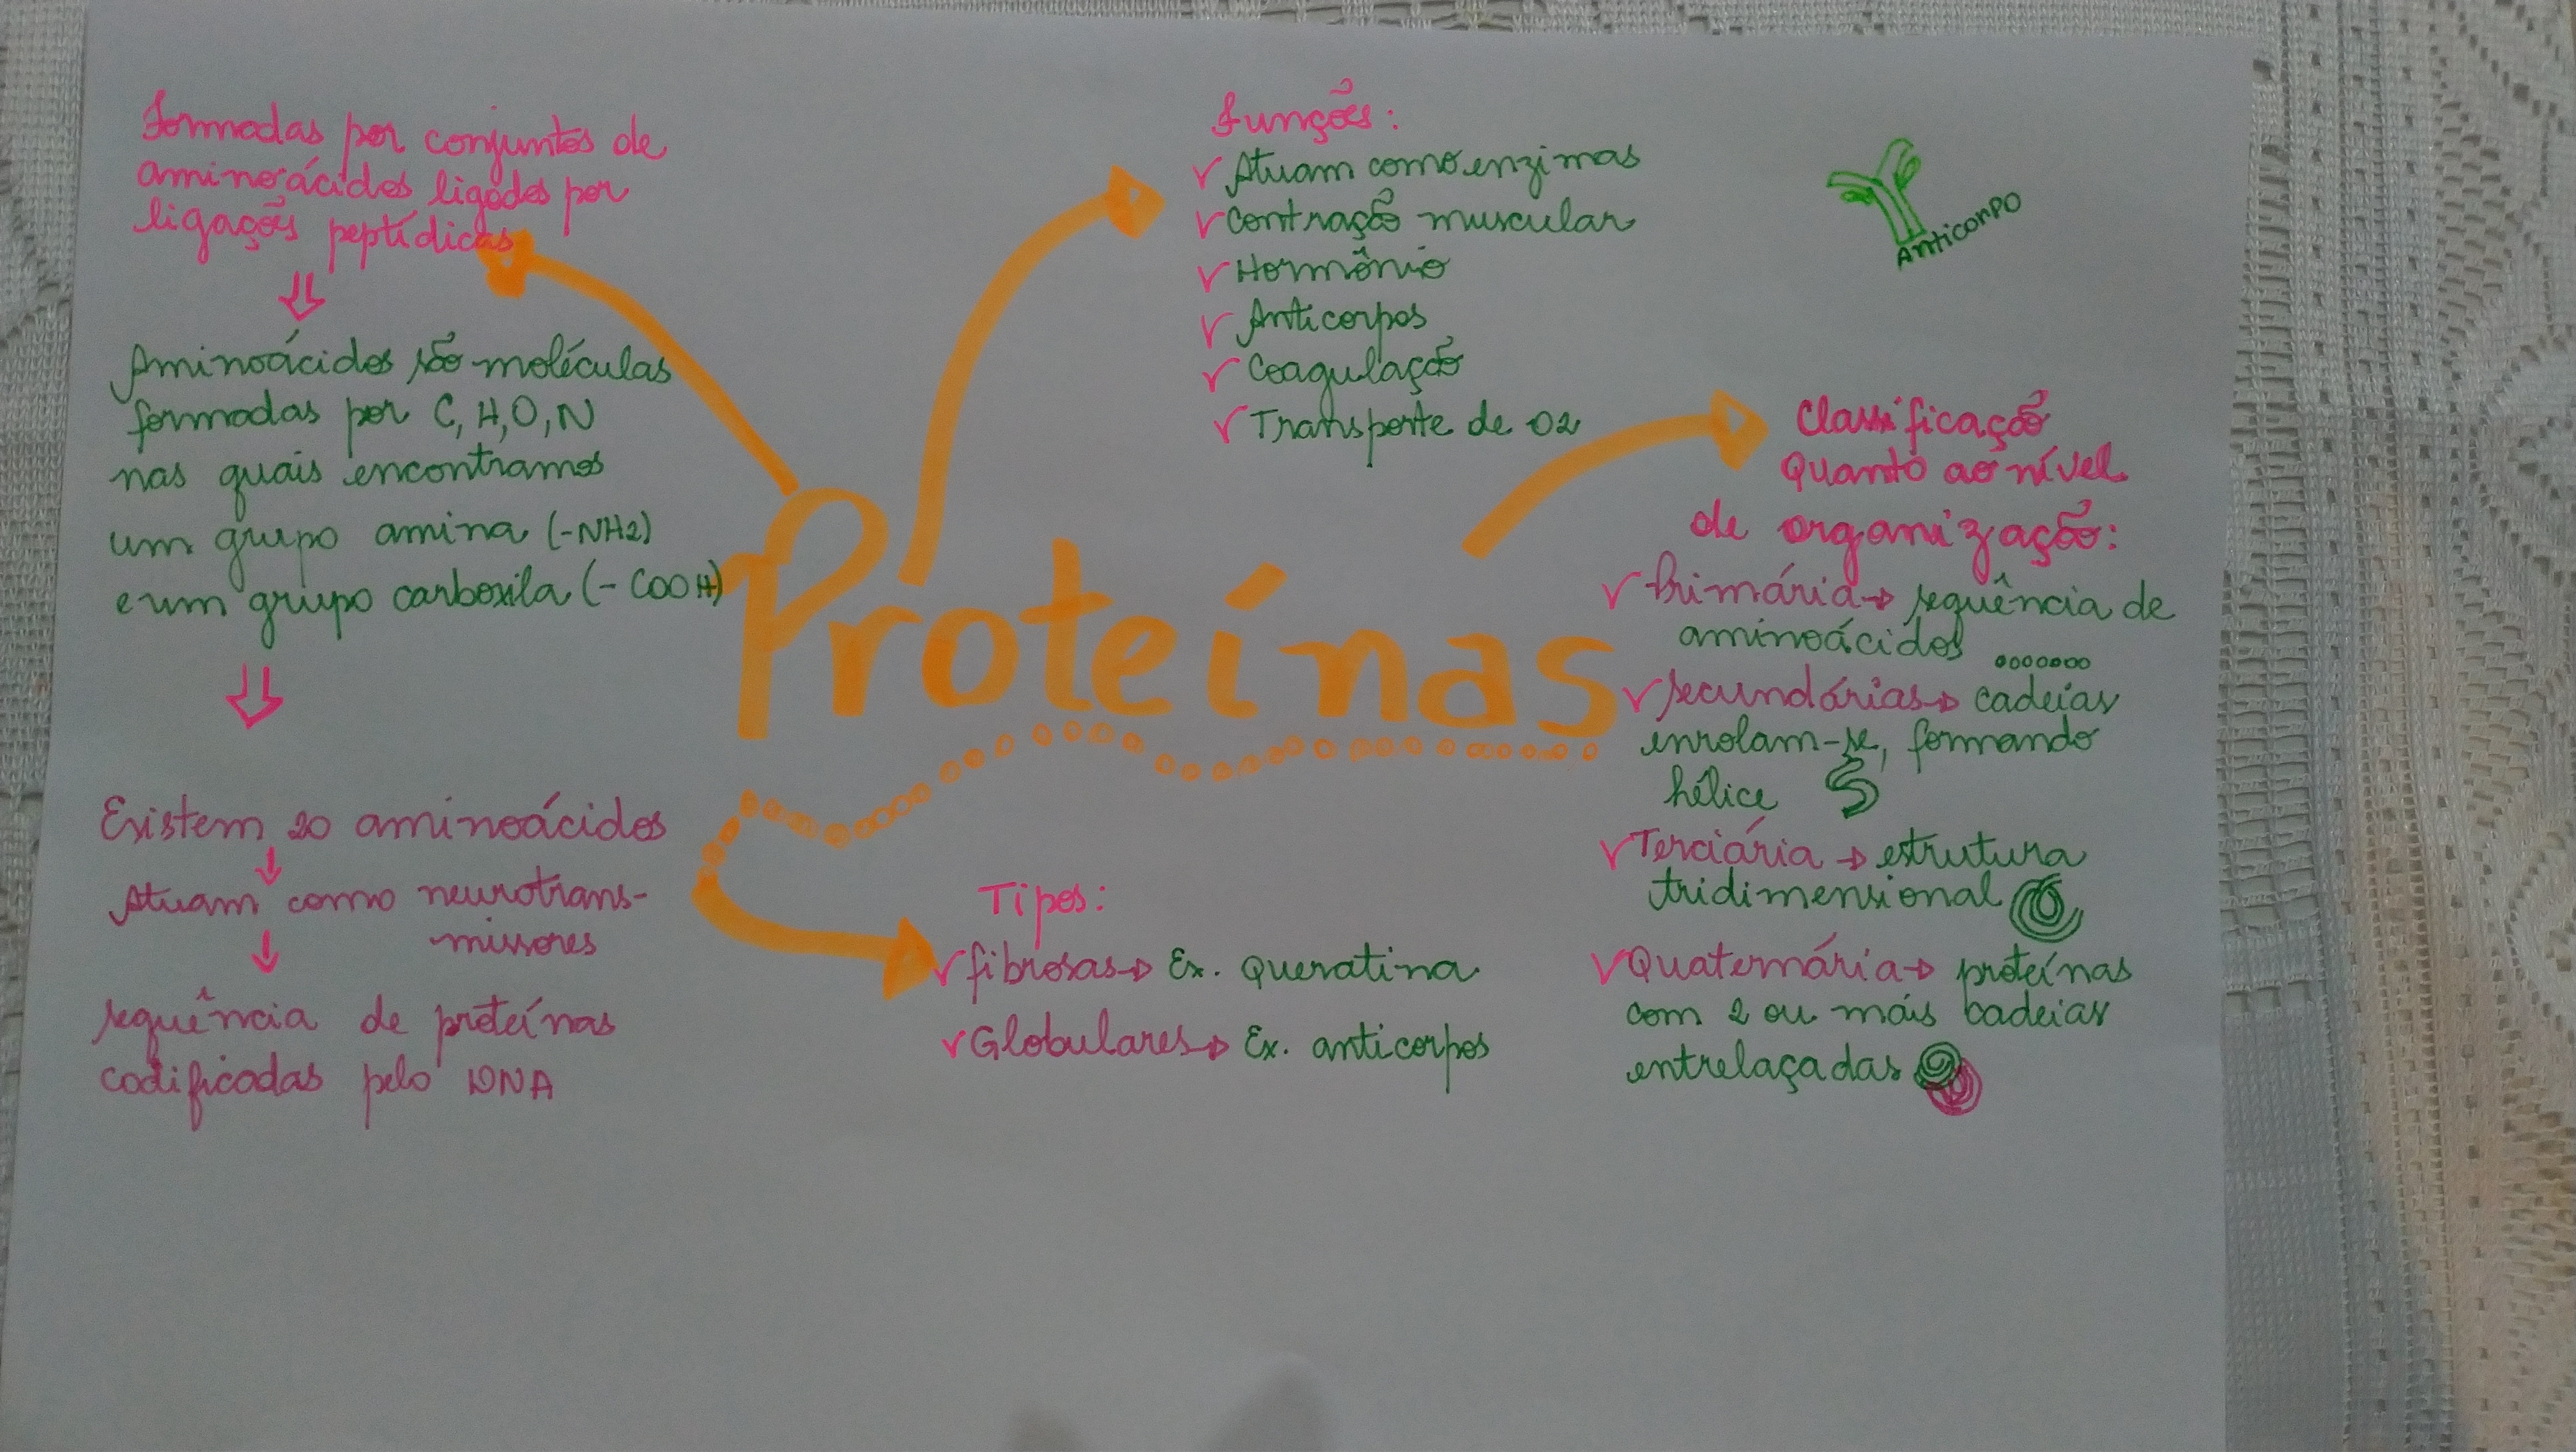 Formadas por conjuntos de
aminoácidos ligados por
ligações peptídicas
Aminoácidos são moléculas
formadas por C, H, O, N
nas quais encontramos
um grupo amina (-NH2)
e um grupo carboxila (- COOH)
Existem 20 aminoácidos
Atuam como neurotrans-
missores
sequência de proteínas
codificadas pelo DNA
Proteínas
Funções:
✓ Atuam como enzimas
✓ Contração muscular
✓ Hormônio
✓ Anticorpos
✓ Coagulação
✓ Transporte de O2
Anticorpo
Tipos:
✓ fibrosas → Ex. queratina
✓ Globulares → Ex. anticorpos
Classificação
Quanto ao nível
de organização:
✓ Primária → sequência de
aminoácidos
✓ secundárias → cadeias
enrolam-se, formando
hélice
✓ Terciária → estrutura
tridimensional
✓ Quaternária → proteínas
com 2 ou mais cadeias
entrelaçadas